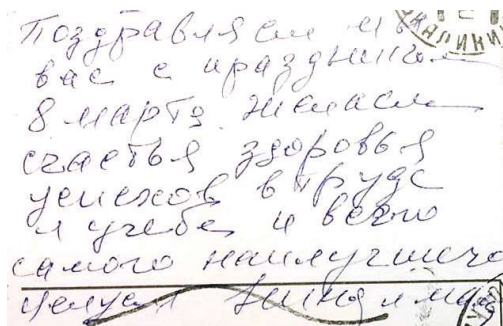 Поздравляем и
вас с праздником
8 марта. Желаем
счастья здоровья
успехов в труде
и учебе, и всего
самого наилучшего
целуем